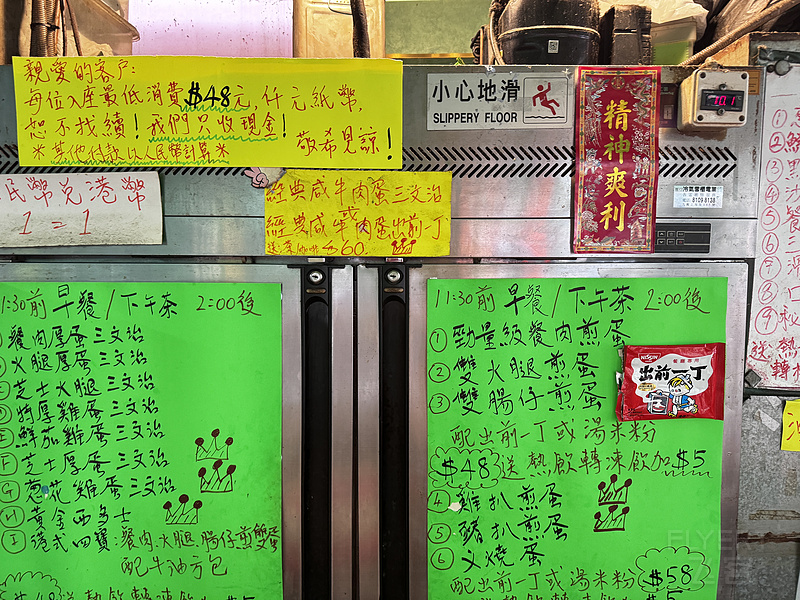 親愛的客戶:
每位入座最低消費$48元,仟元紙幣,
恕不找續!我們只收現金!
*其他付款以人民幣計算*
敬希見諒!
小心地滑
SLIPPERY FLOOR
精神爽利
70.1
冷氣雪櫃電業
民幣兌港幣
1 = 1
經典咸牛肉蛋三文治
或
經典咸牛肉蛋出前一丁
$60
11:30前 早餐/下午茶 2:00後
餐肉厚蛋三文治
火腿厚蛋三文治
芝士火腿三文治
特厚雞蛋三文治
E 鮮茄雞蛋三文治
F 芝士厚蛋三文治
G 蔥花雞蛋三文治
H 黃金西多士
I 港式四寶:餐肉.火腿.腸仔煎雙蛋
配牛油方包
11:30前 早餐/下午茶 2:00後
① 勁量級餐肉煎蛋
② 雙火腿煎蛋
③ 雙腸仔煎蛋
配出前一丁或湯米粉
$48 送熱飲轉凍飲加$5
④ 雞扒煎蛋
⑤ 豬扒煎蛋
⑥ 叉燒蛋
配出前一丁或湯米粉 $58
NISSIN
出前一丁
①
②
③
④
⑤
⑥
⑦
⑧
⑨
送熱
轉